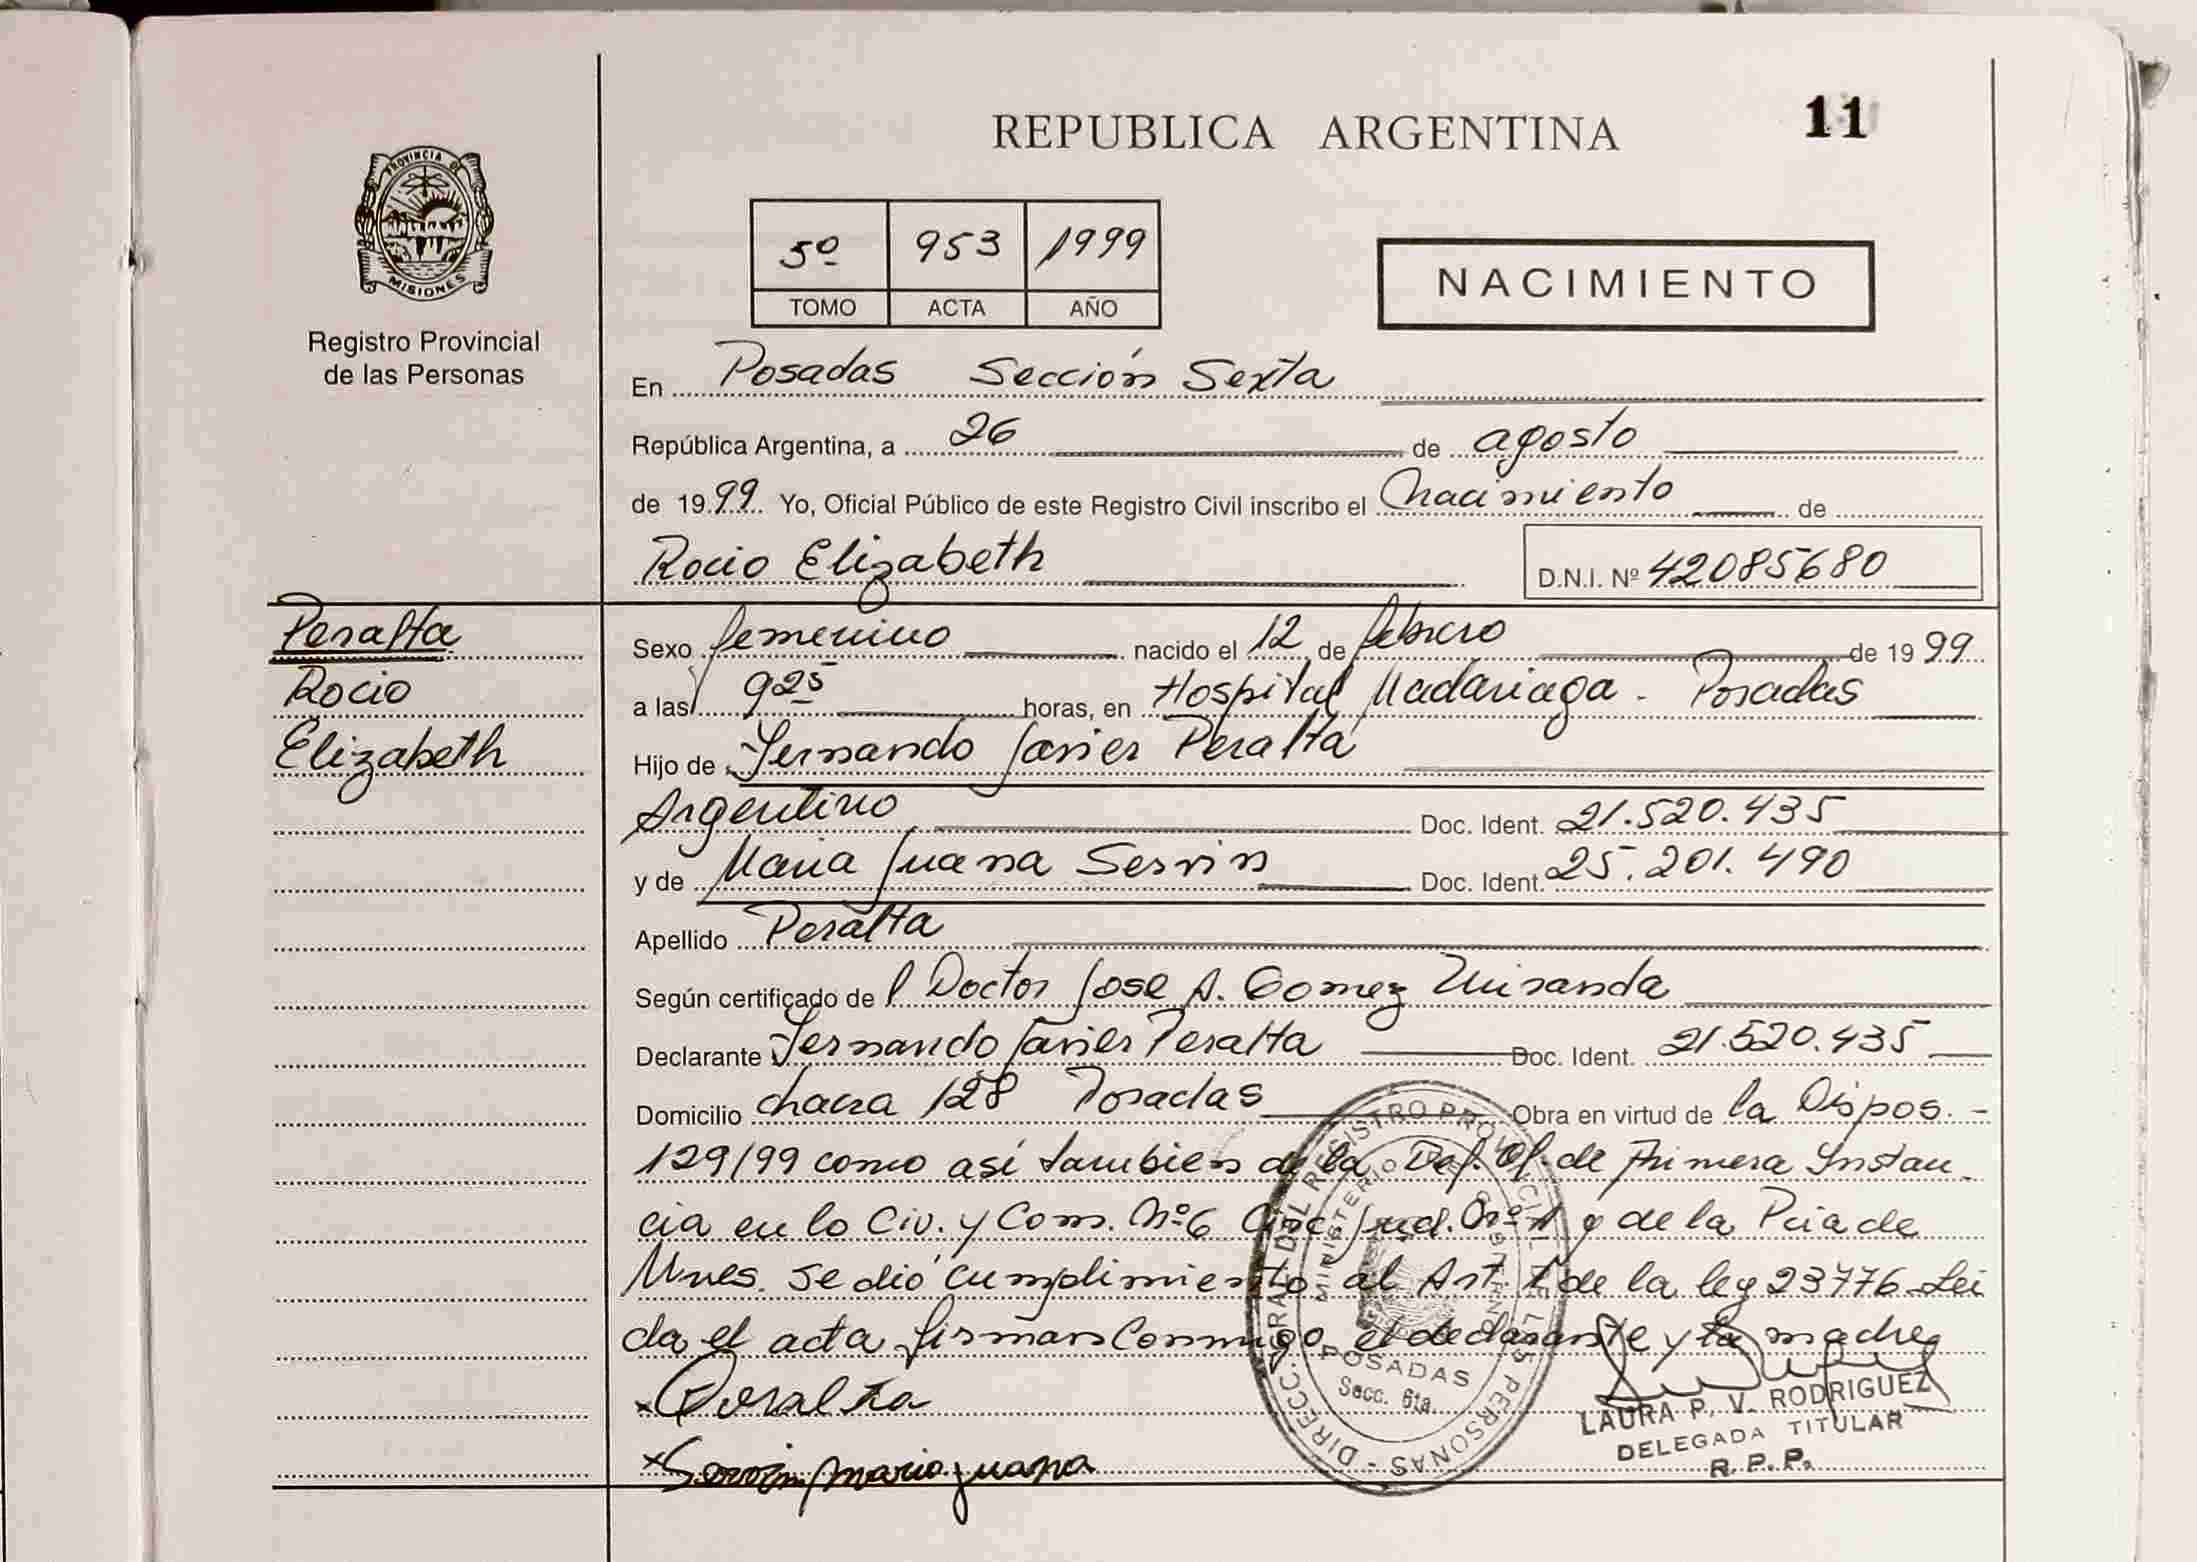 REPUBLICA ARGENTINA 11
PROVINCIA DE MISIONES
Registro Provincial
de las Personas
5º 953 1999
TOMO ACTA AÑO
NACIMIENTO
En Posadas Sección Sexta
República Argentina, a 26 de agosto
de 1999 Yo, Oficial Público de este Registro Civil inscribo el Nacimiento de
Rocio Elizabeth D.N.I. Nº 42085680
Peralta
Rocio
Elizabeth
Sexo femenino nacido el 12 de febrero de 1999
a las 9 25 horas, en Hospital Madariaga - Posadas
Hijo de Fernando Javier Peralta
Argentino Doc. Ident. 21.520.435
y de Maria Juana Servin Doc. Ident. 25.201.490
Apellido Peralta
Según certificado del Doctor Jose A. Gomez Miranda
Declarante Fernando Javier Peralta Doc. Ident. 21.520.435
Domicilio chacra 128 Posadas Obra en virtud de la Dispos. -
129/99 como así tambien de la Def. Of. de Primera Instan-
cia en lo Civ. y Com. Nº 6 Circ. Jud. de la Pcia de
Mnes. se dió cumplimiento al Art. de la ley 23776 Lei
da el acta firman conmigo el declarante y la madre
x Peralta
x Servin, maria juana
DIRECC. GRAL. DEL REGISTRO PROVINCIAL DE LAS PERSONAS -
MINISTERIO DE GOBIERNO
POSADAS
Secc. 6ta.
LAURA P. V. RODRIGUEZ
DELEGADA TITULAR
R. P. P.